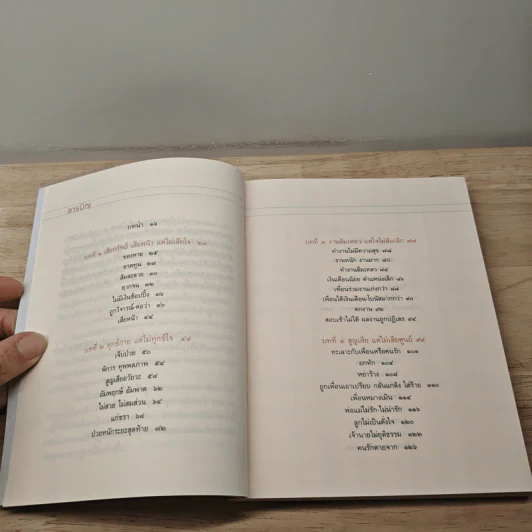 สารบัญ
บทนำ ๑๖
บทที่ ๑ เสียทรัพย์ เสียหน้า แต่ไม่เสียใจ ๒๓
ของหาย ๒๕
ขาดทุน ๒๘
ล้มละลาย ๓๐
ยากจน ๓๒
ไม่มีเงินช้อปปิ้ง ๓๖
ถูกวิจารณ์-ต่อว่า ๔๐
เสียหน้า ๔๔
บทที่ ๒ ทุกข์กาย แต่ไม่ทุกข์ใจ ๔๘
เจ็บปวด ๕๐
พิการ ทุพพลภาพ ๕๔
สูญเสียอวัยวะ ๕๘
อัมพฤกษ์ อัมพาต ๖๒
ไม่สวย ไม่สมส่วน ๖๔
แก่ชรา ๖๘
ป่วยหนักระยะสุดท้าย ๗๒
บทที่ ๓ งานล้มเหลว แต่ใจไม่ล้มเลิก ๗๗
ทำงานไม่มีความสุข ๗๘
งานหนัก งานมาก ๘๐
ทำงานล้มเหลว ๘๔
เงินเดือนน้อย ตำแหน่งเล็ก ๘๖
เพื่อนร่วมงานเก่งกว่า ๘๘
เพื่อนได้เงินเดือน-โบนัสมากกว่า ๙๐
ตกงาน ๙๒
สอบเข้าไม่ได้ ผลงานถูกปฏิเสธ ๙๔
บทที่ ๔ สูญเสีย แต่ไม่เสียศูนย์ ๙๙
ทะเลาะกับเพื่อนหรือคนรัก ๑๐๑
อกหัก ๑๐๔
หย่าร้าง ๑๐๘
ถูกเพื่อนเอาเปรียบ กลั่นแกล้ง ใส่ร้าย ๑๑๐
เพื่อนหมางเมิน ๑๑๔
พ่อแม่ไม่รัก-ไม่น่ารัก ๑๑๖
ลูกไม่เป็นดั่งใจ ๑๒๐
เจ้านายไม่ยุติธรรม ๑๒๒
คนรักตายจาก ๑๒๖